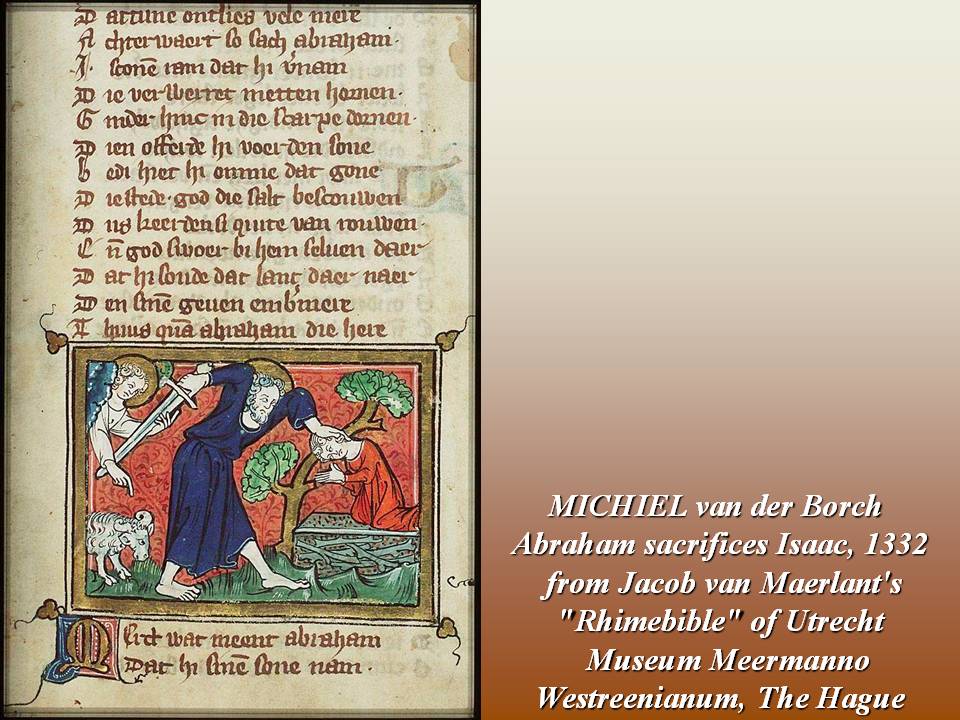 D attune ontlied vele meire
A chterwaert so sach abraham·
I· sconē ram dat hi v̄nam
D ie verwerret metten hornen·
G inder hinc in die scarpe dornen·
D ien offerde hi voer den sone
b edi hiet hi omme dat gone
D ie stede·god die salt bescouwen
D us keerden si quite van rouwen·
E n̄ god swoer bi hem seluen daer
D at hi soude dat lant daer naer
D en sinē geuen
T huus quā abraham die here
M Erct wat meent abraham
Dat hi sinē sone nam·
MICHIEL van der Borch
Abraham sacrifices Isaac, 1332
from Jacob van Maerlant's
"Rhimebible" of Utrecht
Museum Meermanno
Westreenianum, The Hague